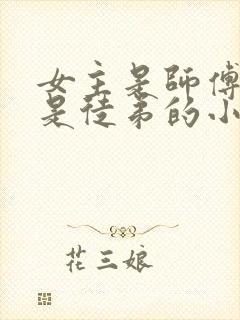 女主是師傅
是徒弟的小
花三娘